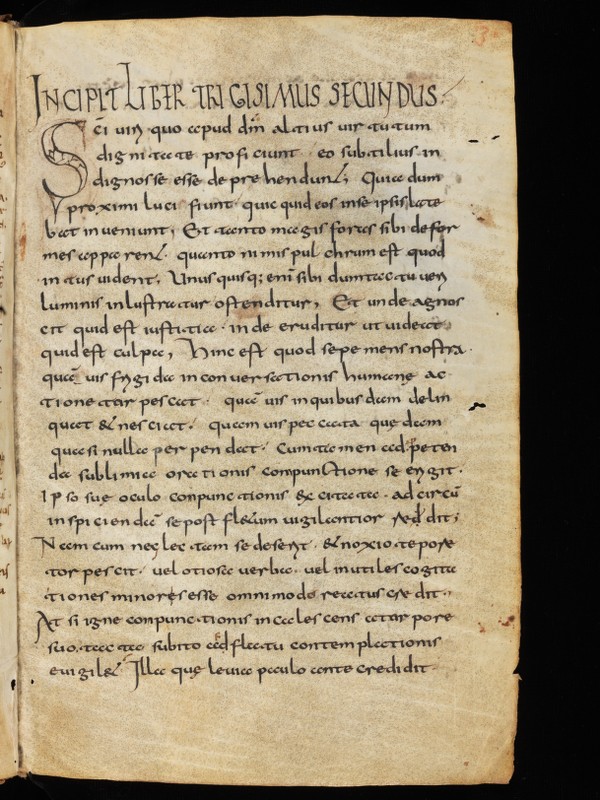 INCIPIT LIBER TRIGISIMUS SECUNDUS
Sci uiri quo apud dm altius uirtutum
dignitate proficiunt eo subtilius in
dignos se esse deprehendunt; Quia dum
proximi luci fiunt quicquid eos in se ipsis late
bat inueniunt, Et tanto magis foras sibi defor
mes apparent quanto nimis pulchrum est quod
intus uident, Unusquisq; enim sibi dum tactu ueri
luminis inlustratur ostenditur, Et unde agnos
cit quid est iustitia inde eruditur ut uideat
quid est culpa, Hinc est quod sepe mens nostra
quamuis frigida in conuersationis humane ac
tione torpescat quamuis in quibusdam delin
quat & nesciat. quamuis peccata quedam
quasi nulla perpendat. Cum tamen ad petem
da sublimia orationis conpunctione se erigit.
Ipso sue oculo conpunctionis excitata ad circu
inspiciendam se post fletum uigilantior redit;
Nam cum neglectam se deserit & noxio tepore
torpescit uel otiosa uerba uel inutiles cogita
tiones minoris esse omnimodo reatus credit.
At si igne conpunctionis incalescens a torpore
suo tacta subito adflatu contemplationis
euigil& Illa que leuia paulo ante credidit